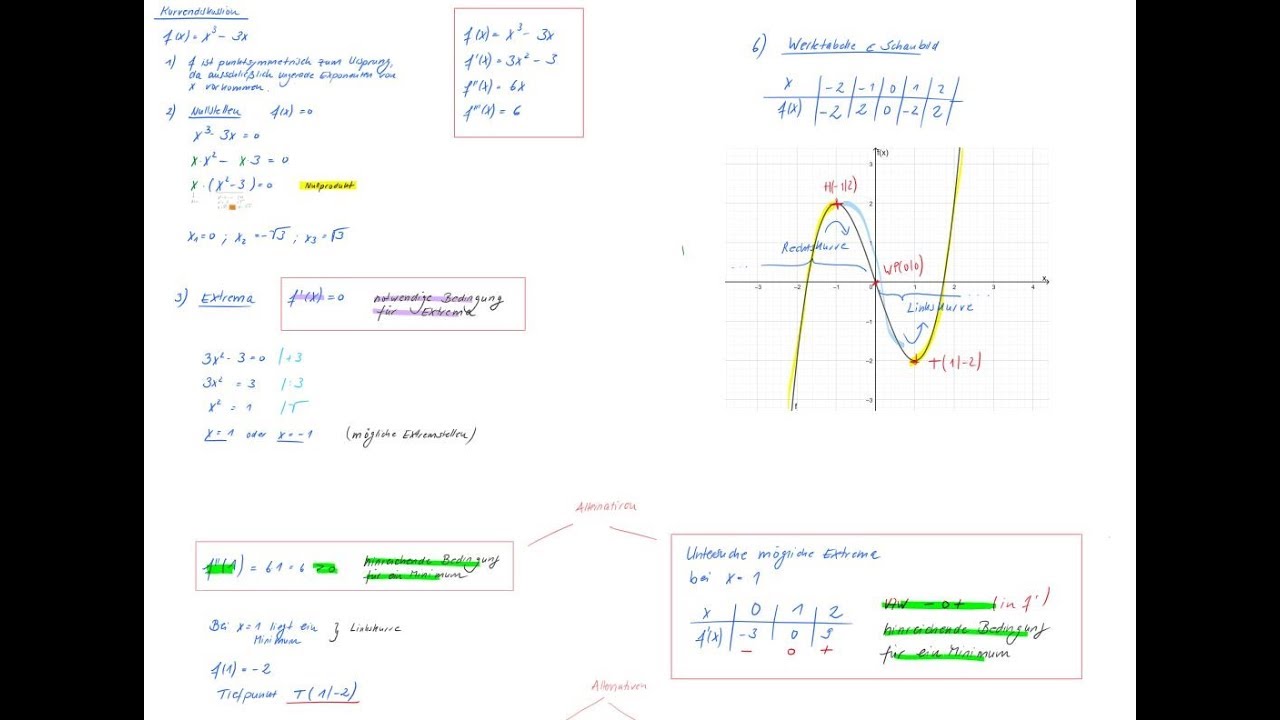 Kurvendiskussion
f(x) = x³ - 3x
1) f ist punktsymmetrisch zum Ursprung,
da ausschließlich ungerade Exponenten von
x vorkommen.
2) Nullstellen f(x) = 0
x³ - 3x = 0
x·x² - x·3 = 0
x·(x²-3) = 0 Nullprodukt
x₁=0 ; x₂ = -√3 ; x₃ = √3
3) Extrema f'(x) = 0 notwendige Bedingung
für Extrema
3x² - 3 = 0 |+3
3x² = 3 |:3
x² = 1 |√
x = 1 oder x = -1 (mögliche Extremstellen)
f(x) = x³ - 3x
f'(x) = 3x² - 3
f''(x) = 6x
f'''(x) = 6
6) Wertetabelle & Schaubild
x -2 -1 0 1 2
f(x) -2 2 0 -2 2
f(x)
H(-1|2)
2
1
Rechtskurve
WP(0|0)
x
-3 -2 -1 0 1 2 3 4
Linkskurve
-1
-2
T(1|-2)
-3
f
Alternativen
f''(1) = 6·1 = 6 > 0 hinreichende Bedingung
für ein Minimum
Bei x=1 liegt ein
Minimum } Linkskurve
f(1) = -2
Tiefpunkt T(1|-2)
Untersuche mögliche Extrema
bei x = 1
x 0 1 2
f'(x) -3 0 9
- 0 +
VZW - 0 + (in f')
hinreichende Bedingung
für ein Minimum
Alternativen